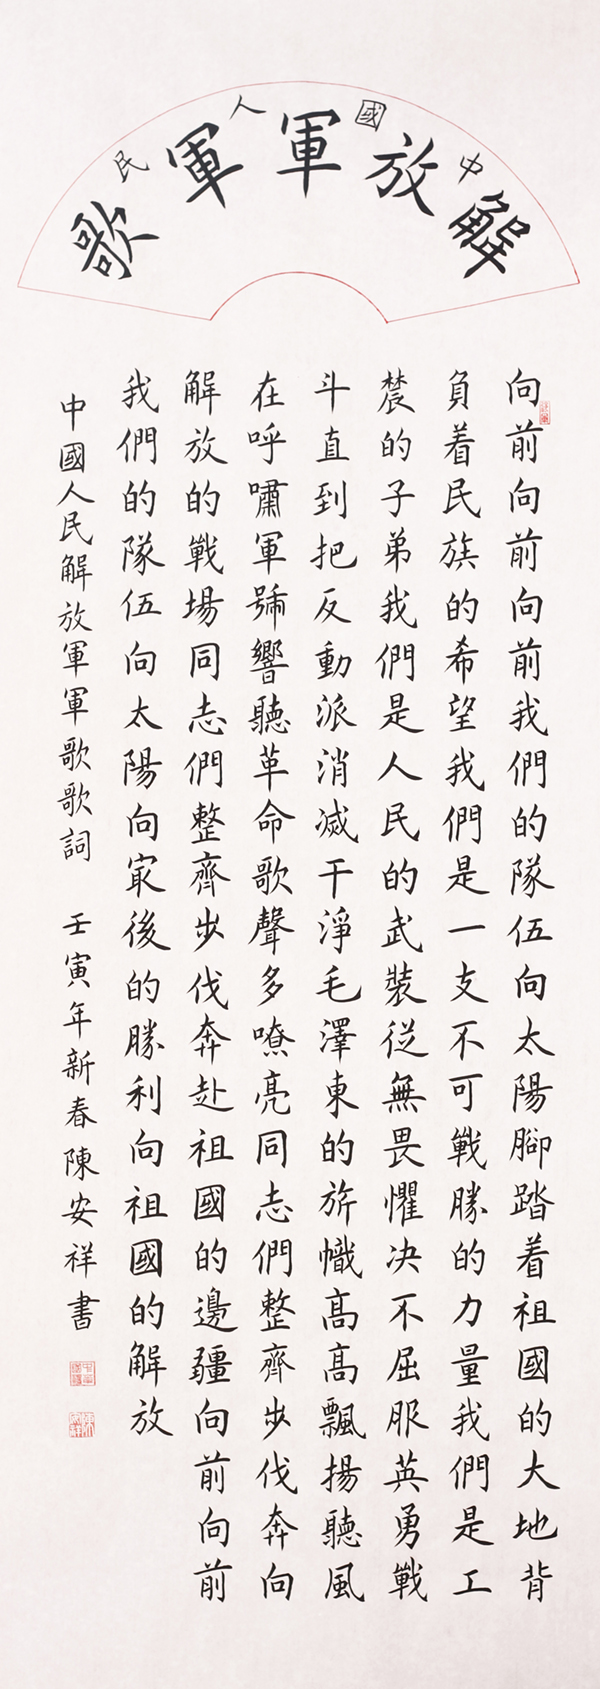 中國人民
解放軍軍歌
向前向前向前我們的隊伍向太陽腳踏着祖國的大地背
負着民族的希望我們是一支不可戰勝的力量我們是工
農的子弟我們是人民的武裝從無畏懼决不屈服英勇戰
斗直到把反動派消滅干淨毛澤東的旂幟高高飄揚聽風
在呼嘯軍號響聽革命歌聲多嘹亮同志們整齊步伐奔向
解放的戰場同志們整齊步伐奔赴祖國的邊疆向前向前
我們的隊伍向太陽向最後的勝利向祖國的解放
中國人民解放軍軍歌歌詞 壬寅年新春陳安祥書